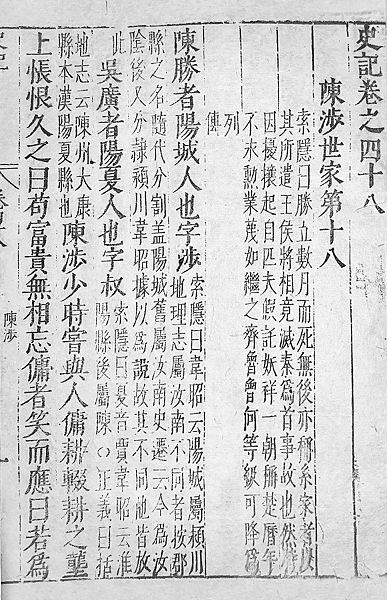 史記卷之四十八
陳涉世家第十八
索隱曰勝立數月而死無後亦稱系家者以
其所遣王侯將相竟滅秦爲首事故也然時
因擾攘起自匹夫假託妖祥一朝稱楚曆年
不永勳業蔑如繼之齊魯曾何等級可降爲
列
傳
陳勝者陽城人也字涉索隱曰韋昭云陽城屬潁川
地理志屬汝南不同者按郡
縣之名隨代分割盖陽城舊屬汝南史遷云今爲汝
陰後又分隸潁川韋昭據以爲說故其不同他皆放
此 吳廣者陽夏人也字叔索隱曰夏音賈韋昭云淮
陽縣後屬陳○正義曰括
地志云陳州太康
縣本漢陽夏縣也陳涉少時嘗與人傭耕輟耕之壟
上悵恨久之曰苟富貴無相忘傭者笑而應曰若爲
陳涉